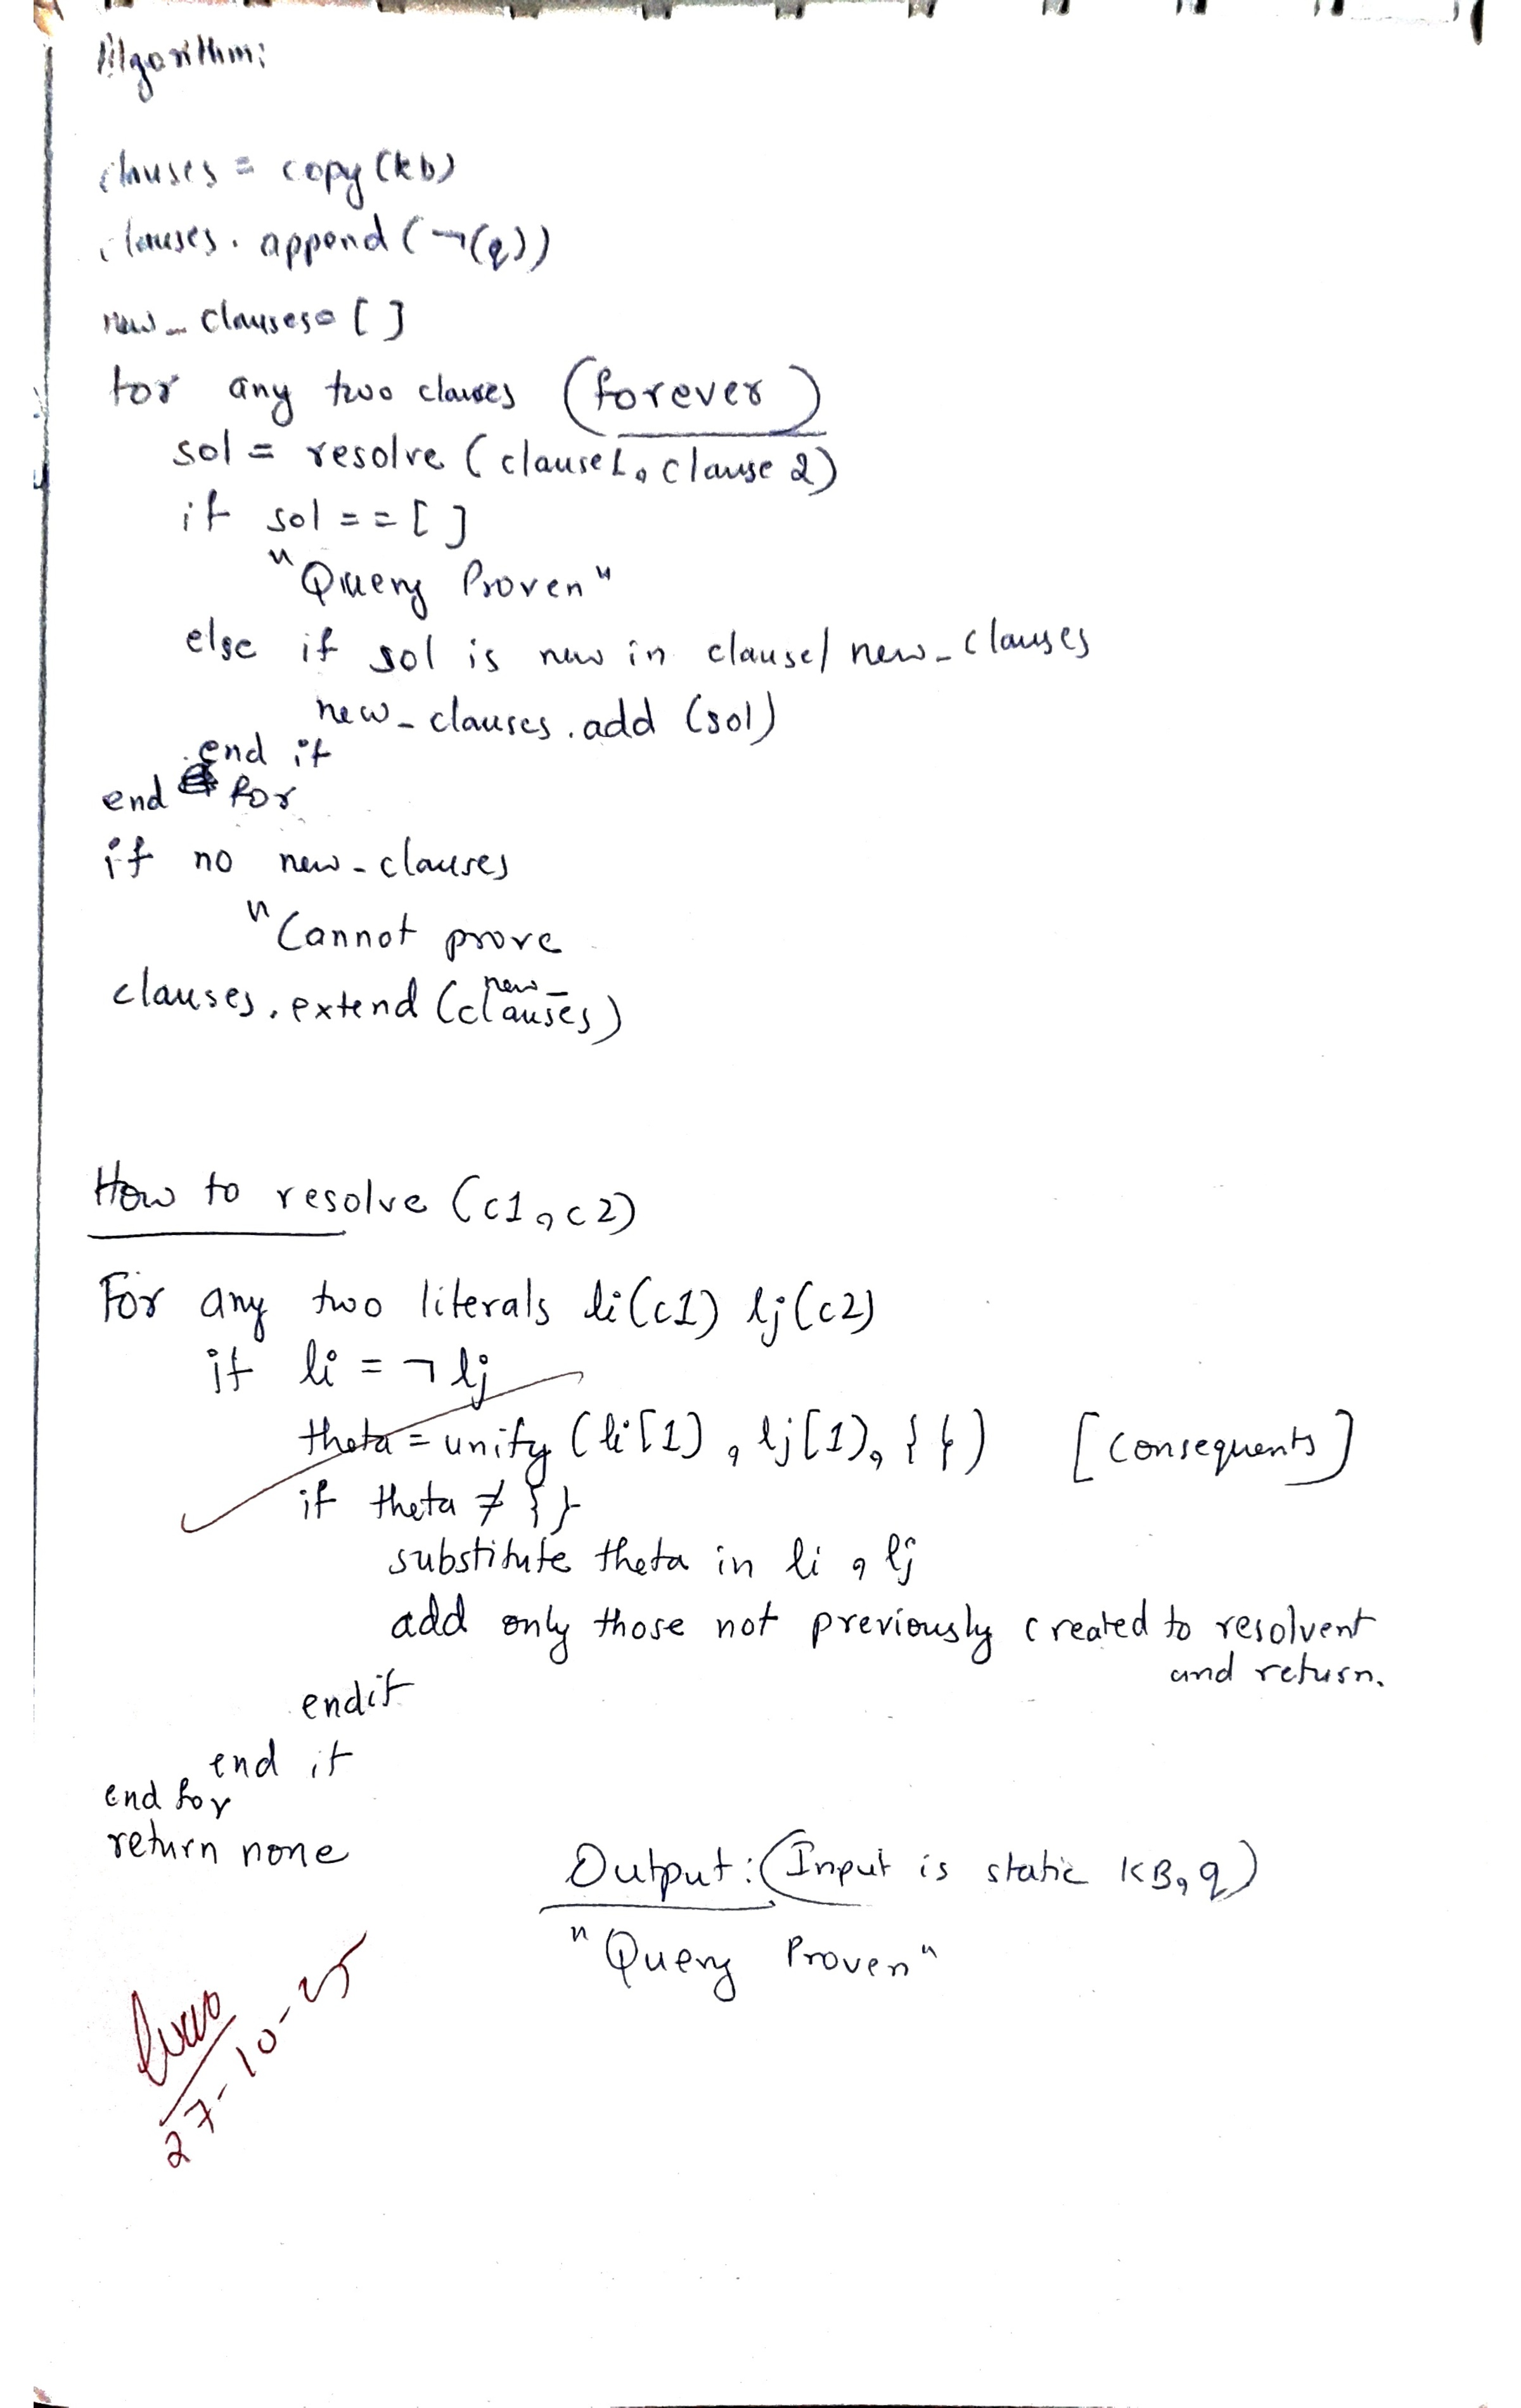 Algorithm:
clauses = copy (kb)
clauses. append (¬(q))
new_clauses= [ ]
for any two clauses (forever)
sol = resolve (clause1, clause 2)
if sol == [ ]
"Query Proven"
else if sol is new in clause/ new_clauses
new_clauses.add (sol)
end if
end for
if no new-clauses
"Cannot prove
clauses.extend (new_clauses)
How to resolve (c1,c2)
For any two literals li(c1) lj(c2)
if li = ¬ lj
theta = unify (li[1), lj[1), { }) [consequents]
if theta ≠ { }
substitute theta in li, lj
add only those not previously created to resolvent
and return.
endif
end if
end for
return none
Output: (Input is static KB, q)
"Query Proven"
27-10-25